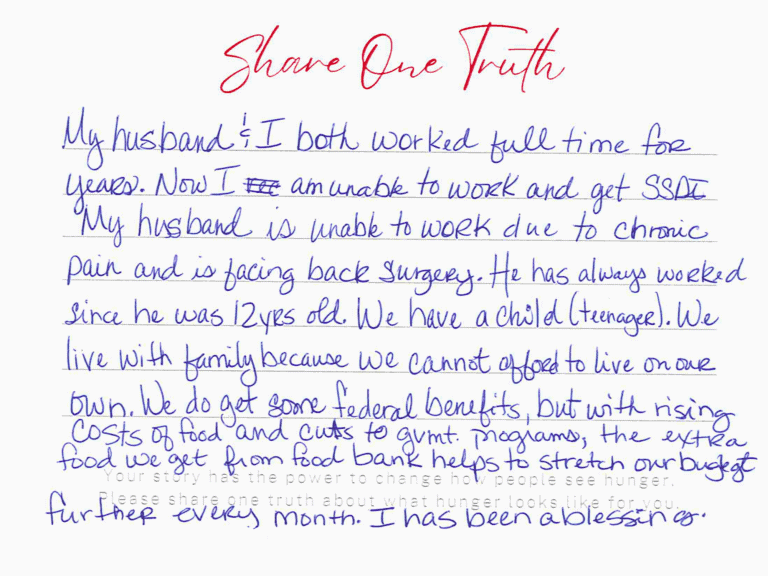 Share One Truth
My husband & I both worked full time for
years. Now I am unable to work and get SSDI
My husband is unable to work due to chronic
pain and is facing back surgery. He has always worked
since he was 12yrs old. We have a child (teenager). We
live with family because we cannot afford to live on our
own. We do get some federal benefits, but with rising
costs of food and cuts to gvmt. programs, the extra
food we get from food bank helps to stretch our budget
Your story has the power to change how people see hunger.
Please share one truth about what hunger looks like for you.
further every month. I has been a blessing.